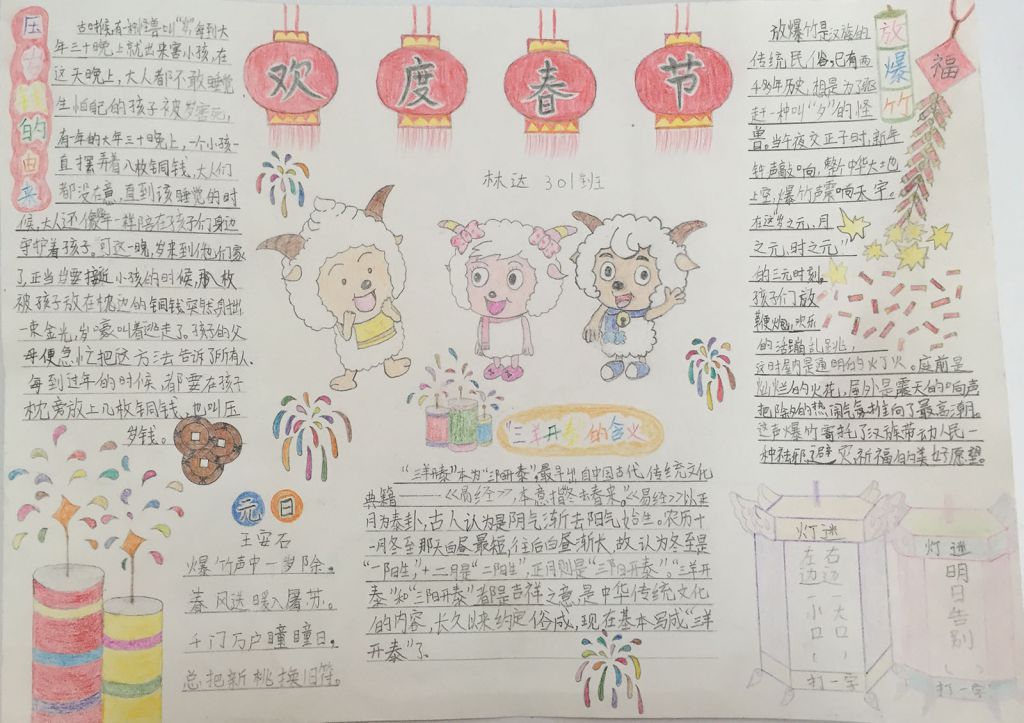 欢度春节
林达 301班
压岁钱的由来
古时候,有一种怪兽叫“岁”,每到大
年三十晚上就出来害小孩,在
这天晚上,大人都不敢睡觉
生怕自己的孩子被岁害死,
有一年的大年三十晚上,一个小孩一
直摆弄着八枚铜钱,大人们
都没在意,直到该睡觉的时
候,大人还像往年一样陪在孩子们身边
守护着孩子。可这一晚,岁来到他们家
了,正当要接近小孩的时候,那八枚
被孩子放在枕边的铜钱突然射出
一束金光,岁嚎叫着逃走了。孩子的父
母便急忙把这方法告诉了所有人、
每到过年的时候,都要在孩子
枕旁放上几枚铜钱,也叫压
岁钱。
元日
王安石
爆竹声中一岁除。
春风送暖入屠苏。
千门万户曈曈日。
总把新桃换旧符。
“三羊开泰”的含义
“三羊开泰”本为“三阳开泰”,最早出自中国古代,传统文化
典籍——《易经》,本意指冬去春来。《易经》以正
月为泰卦,古人认为是阴气渐去阳气始生。农历十
一月冬至那天白昼最短,往后白昼渐长,故认为冬至是
“一阳生”,十二月是“二阳生”,正月则是“三阳开泰”。“三羊开
泰”和“三阳开泰”都是吉祥之意,是中华传统文化
的内容,长久以来约定俗成,现在基本写成“三羊
开泰”了、
放爆竹
福
放爆竹是汉族的
传统民俗,已有两
千多年历史,想是为了驱
赶一种叫“夕”的怪
兽。当午夜交正子时,新年
钟声敲响,整个中华大地
上空,爆竹声震响天宇。
在这“岁之元,月
之元,时之元”
的三元时刻。
孩子们放
鞭炮,欢乐
的活蹦乱跳,
这时屋内是通明的灯火。庭前是
灿烂的火花,屋外是震天的响声
把除夕的热闹气氛推向了最高潮。
这声爆竹寄托了汉族劳动人民一
种祛邪、避灾、祈福的美好愿望。
灯谜
右边一大口,
左边一小口(
打一字
灯谜
明日告别
( )
打一字